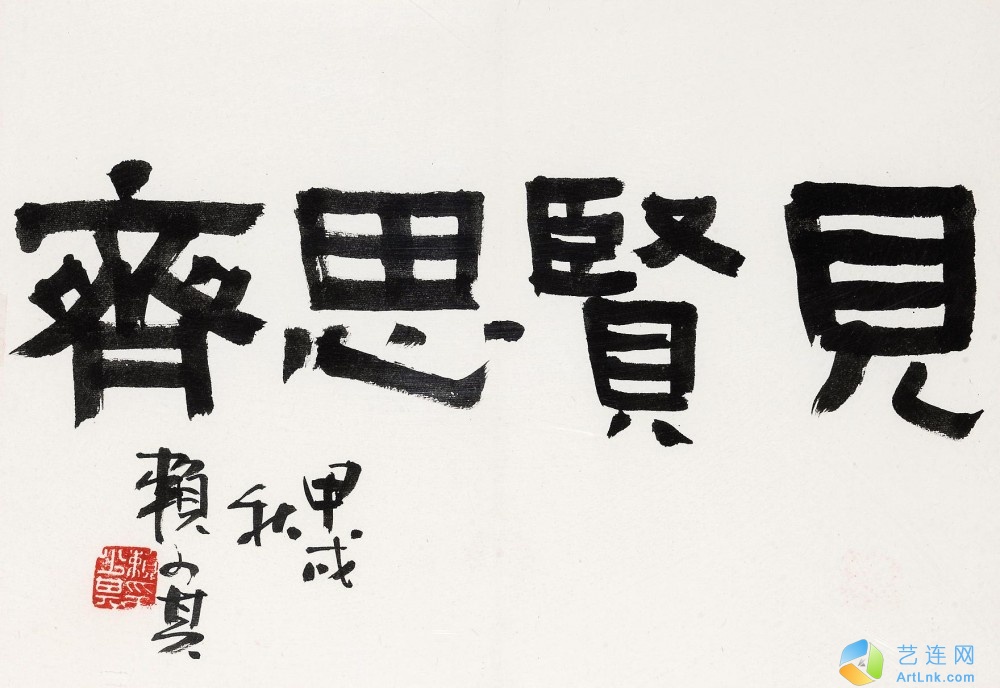 見賢思齊
甲戌
秋
賴少其
艺连网
ArtLnk.com